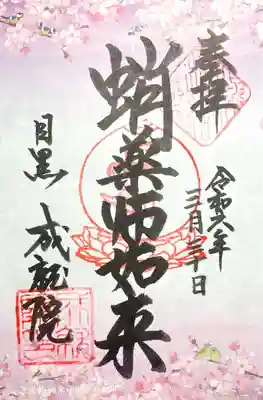 奉拝
令和六年
三月三十日
蛸薬師如来
目黒 成就院